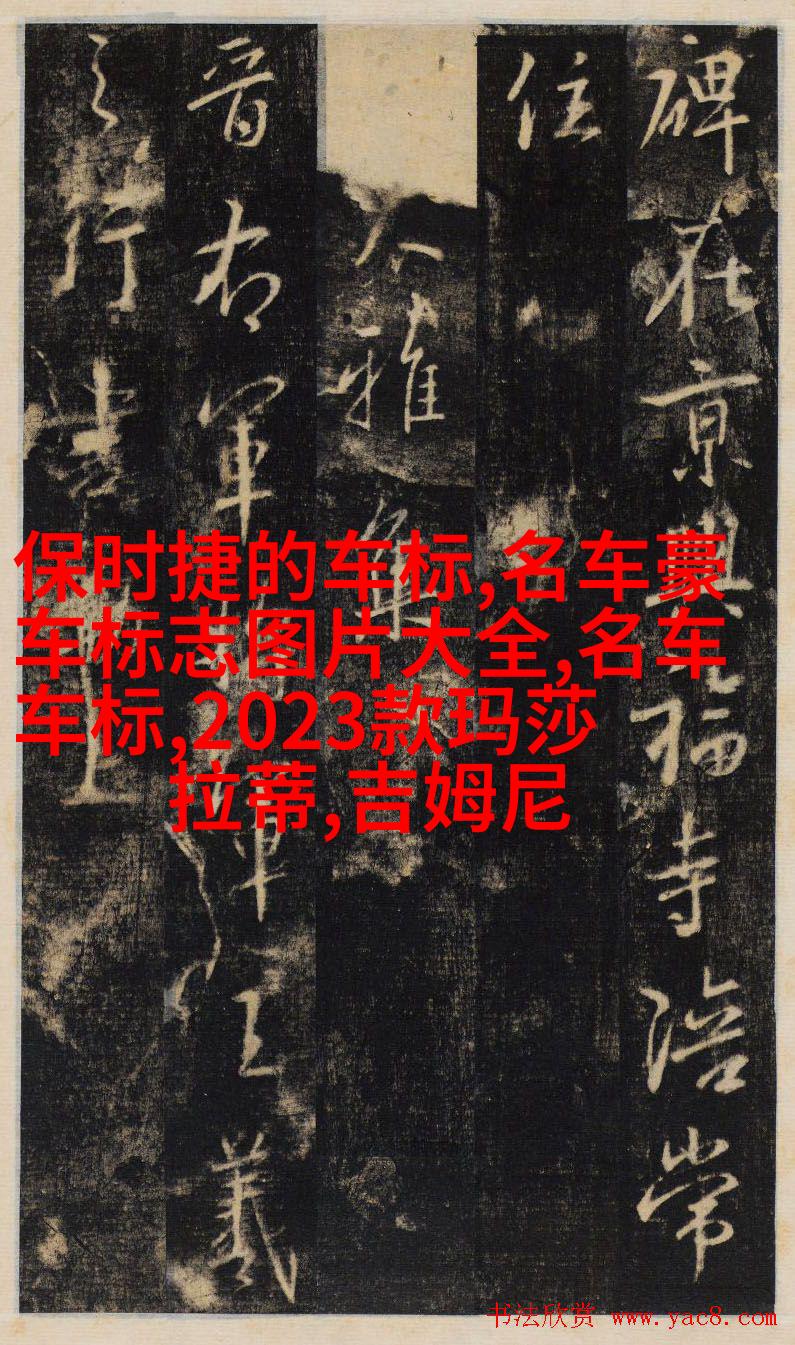 碑在京興福寺陪常
住
大雅集
晋右軍將軍王羲
之行書勒上
保时捷的车标,名车豪
车标志图片大全,名车
车标,2023款玛莎
拉蒂,吉姆尼
书法欣赏 www.yac8.com